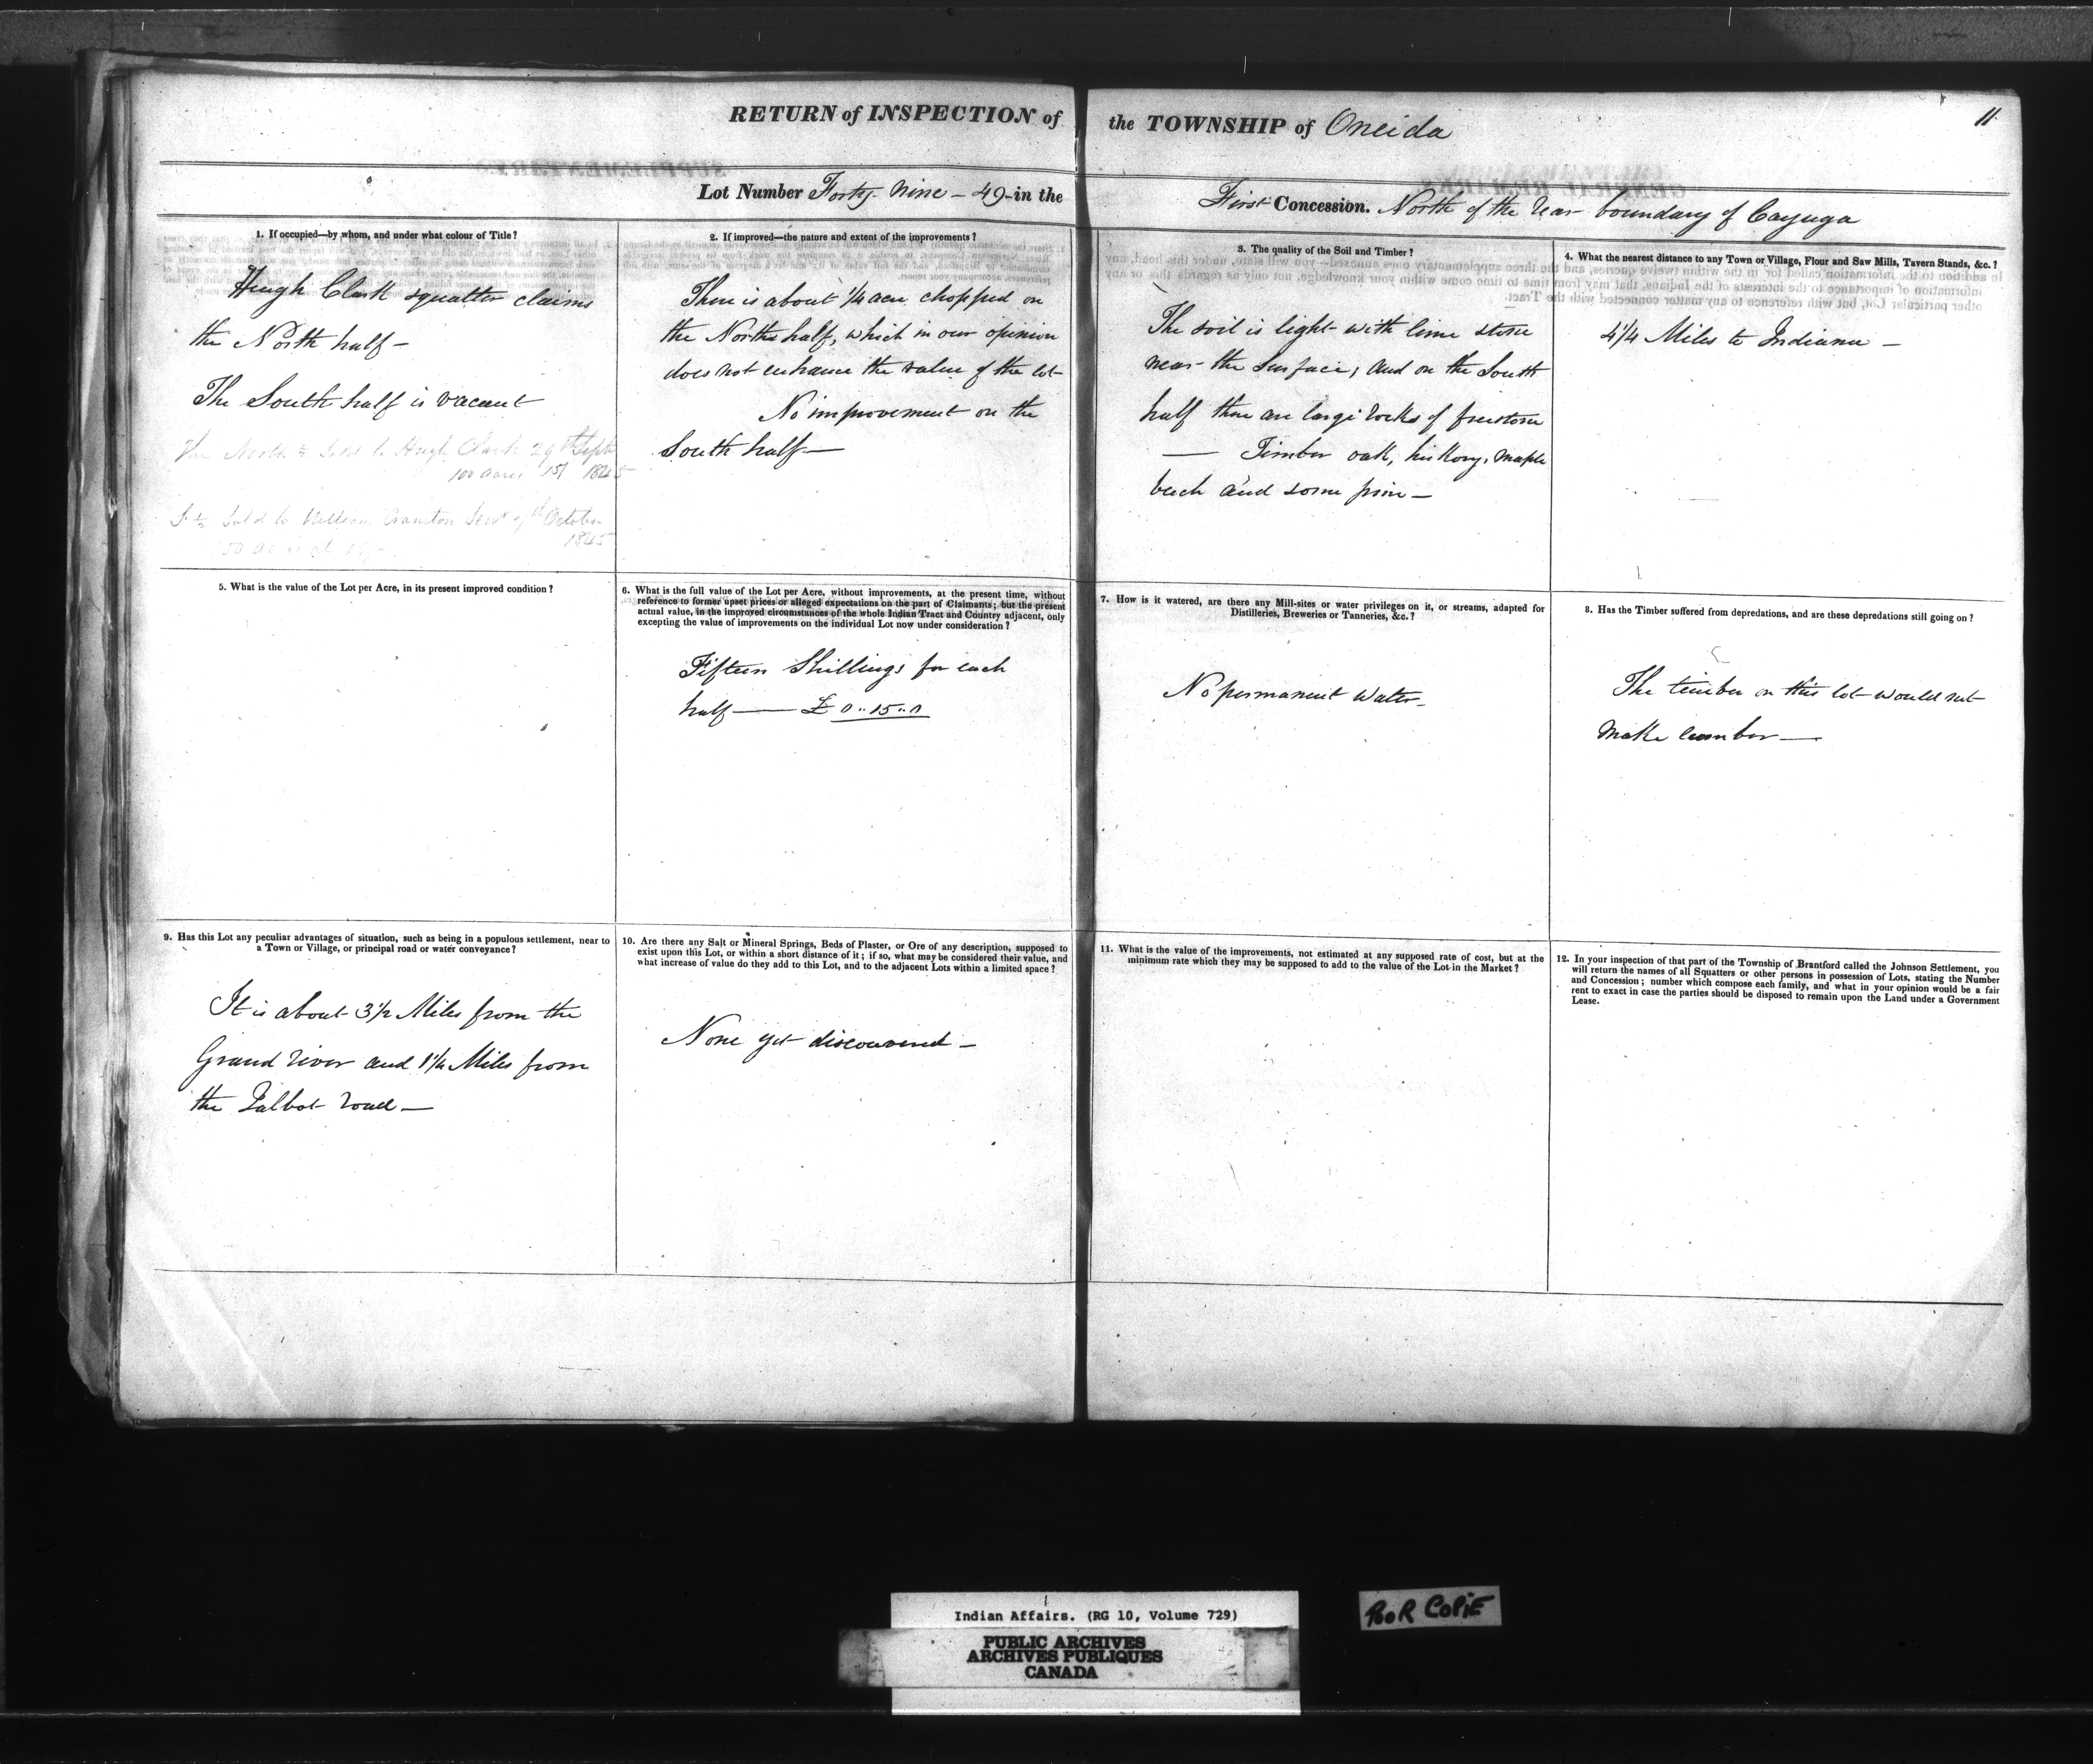 RETURN of INSPECTION of the TOWNSHIP of Oneida
11
Lot Number Forty Nine - 49 - in the First Concession. North of the rear boundary of Cayuga
1. If occupied—by whom, and under what colour of Title?
Hugh Clark squatter claims
the North half -
The South half is vacant
The North ½ Sold to Hugh Clark 29th Sept
100 acres 15/ 1845
S ½ Sold to William Cranston Senr 7th October
1845
100 acres at 15/-
2. If improved—the nature and extent of the improvements?
There is about ¼ acre chopped on
the North half, which in our opinion
does not enhance the value of the lot
No improvement on the
South half —
3. The quality of the Soil and Timber?
The soil is light with lime stone
near the surface, and on the South
half there are large rocks of freestone
— Timber oak, hickory, maple
beech and some pine —
4. What the nearest distance to any Town or Village, Flour and Saw Mills, Tavern Stands, &c.?
4¼ Miles to Indiana —
5. What is the value of the Lot per Acre, in its present improved condition?
6. What is the full value of the Lot per Acre, without improvements, at the present time, without
reference to former upset prices or alleged expectations on the part of Claimants; but the present
actual value, in the improved circumstances of the whole Indian Tract and Country adjacent, only
excepting the value of improvements on the individual Lot now under consideration?
Fifteen Shillings for each
half — £ 0..15..0
7. How is it watered, are there any Mill-sites or water privileges on it, or streams, adapted for
Distilleries, Breweries or Tanneries, &c.?
No permanent Water -
8. Has the Timber suffered from depredations, and are these depredations still going on?
The timber on this lot would not
make lumber —
9. Has this Lot any peculiar advantages of situation, such as being in a populous settlement, near to
a Town or Village, or principal road or water conveyance?
It is about 3½ Miles from the
Grand river and 1¼ Miles from
the Talbot road —
10. Are there any Salt or Mineral Springs, Beds of Plaster, or Ore of any description, supposed to
exist upon this Lot, or within a short distance of it; if so, what may be considered their value, and
what increase of value do they add to this Lot, and to the adjacent Lots within a limited space?
None yet discovered —
11. What is the value of the improvements, not estimated at any supposed rate of cost, but at the
minimum rate which they may be supposed to add to the value of the Lot in the Market?
12. In your inspection of that part of the Township of Brantford called the Johnson Settlement, you
will return the names of all Squatters or other persons in possession of Lots, stating the Number
and Concession; number which compose each family, and what in your opinion would be a fair
rent to exact in case the parties should be disposed to remain upon the Land under a Government
Lease.
Indian Affairs. (RG 10, Volume 729)
PUBLIC ARCHIVES
ARCHIVES PUBLIQUES
CANADA
POOR COPIE